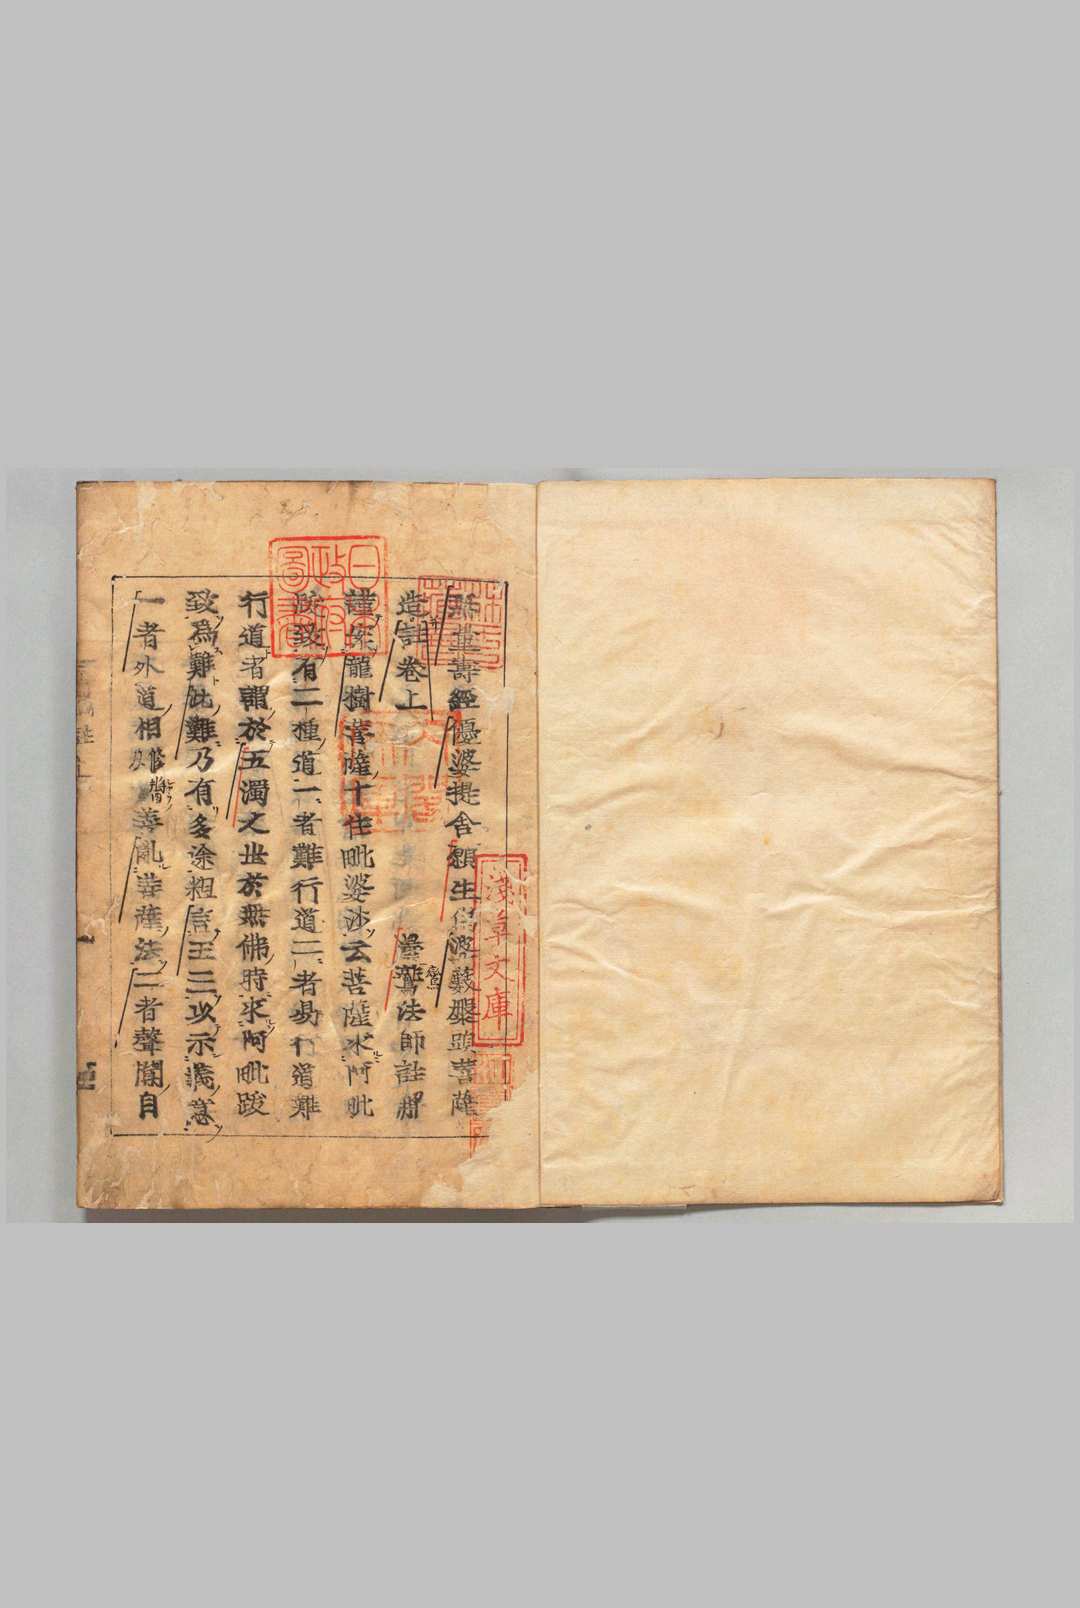 無量壽經優婆提舍願生偈婆藪槃頭菩薩
造註卷上 曇鸞法師註解
謹案龍樹菩薩十住毗婆沙云菩薩求阿毗
跋致有二種道一者難行道二者易行道難
行道者謂於五濁之世於無佛時求阿毗跋
致為難此難乃有多途粗言五三以示義意
一者外道相善亂菩薩法二者聲聞自
日本政府圖書
淺草文庫